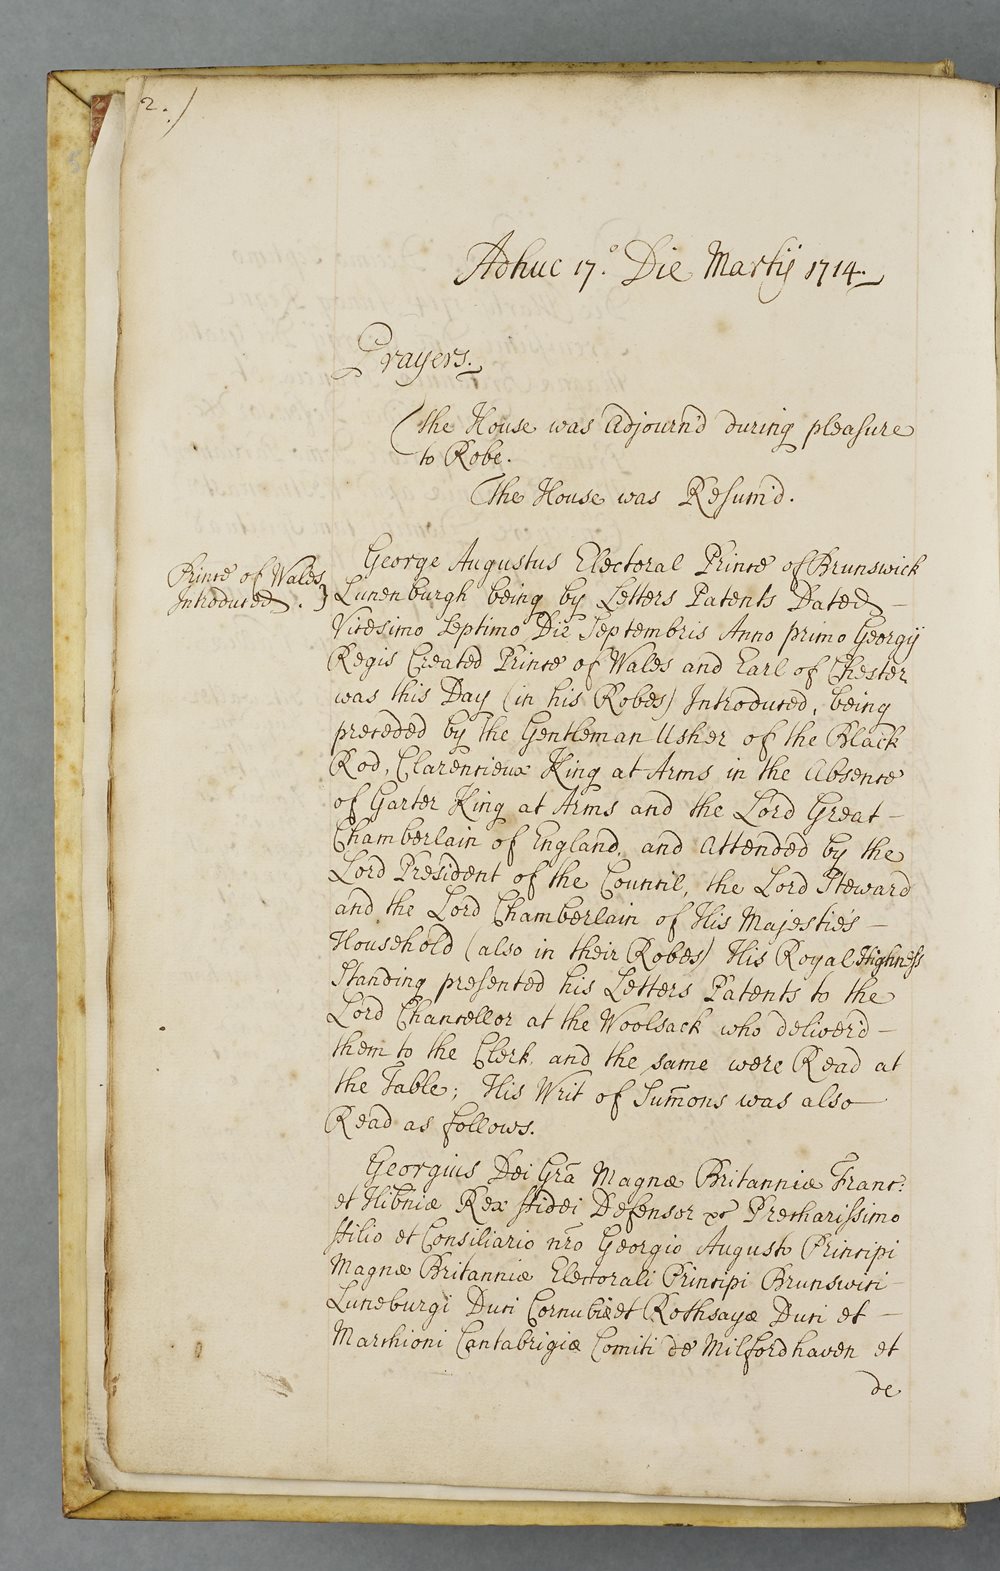 2.)
Adhuc 17.° Die Martij 1714.
Prayers.
The House was Adjourn'd during pleasure
to Robe.
The House was Resum'd.
Prince of Wales
Introduced.}
George Augustus Electoral Prince of Brunswick
Lunenburgh being by Letters Patents Dated
Vicesimo Septimo Die Septembris Anno primo Georgij
Regis Created Prince of Wales and Earl of Chester
was this Day (in his Robes) Introduced, being
preceded by the Gentleman Usher of the Black
Rod, Clarencieux King at Arms in the Absence
of Garter King at Arms and the Lord Great
Chamberlain of England, and Attended by the
Lord President of the Council, the Lord Steward
and the Lord Chamberlain of His Majestie's
Household (also in their Robes) His Royal Highness
Standing presented his Letters Patents to the
Lord Chancellor at the Woolsack who deliver'd
them to the Clerk, and the same were Read at
the Table; His Writ of Sum̄ons was also
Read as follows.
Georgius Dei Grā Magnæ Britanniæ Franc:
et Hibniæ Rex ffidei Defensor &c Precharissimo
ffilio et Consiliario nr̄o Georgio Augusto Principi
Magnæ Britanniæ Electorali Principi Brunswici
Luneburgi Duci Cornubiæ et Rothsayæ Duci et
Marchioni Cantabrigiæ Comiti de Milfordhaven et
de